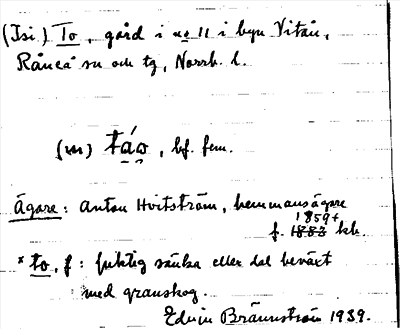 (Isi) To, gård i nº 11 i byn Vitån,
Råneå sn och tg, Norrb. l.
(m) táo, bf. fem.
Ägare: Anton Hvitström, hemmansägare
f. 1883 1859 + kb.
* to, f: fuktig sänka eller dal beväxt
med granskog.
Edvin Brännström 1939.